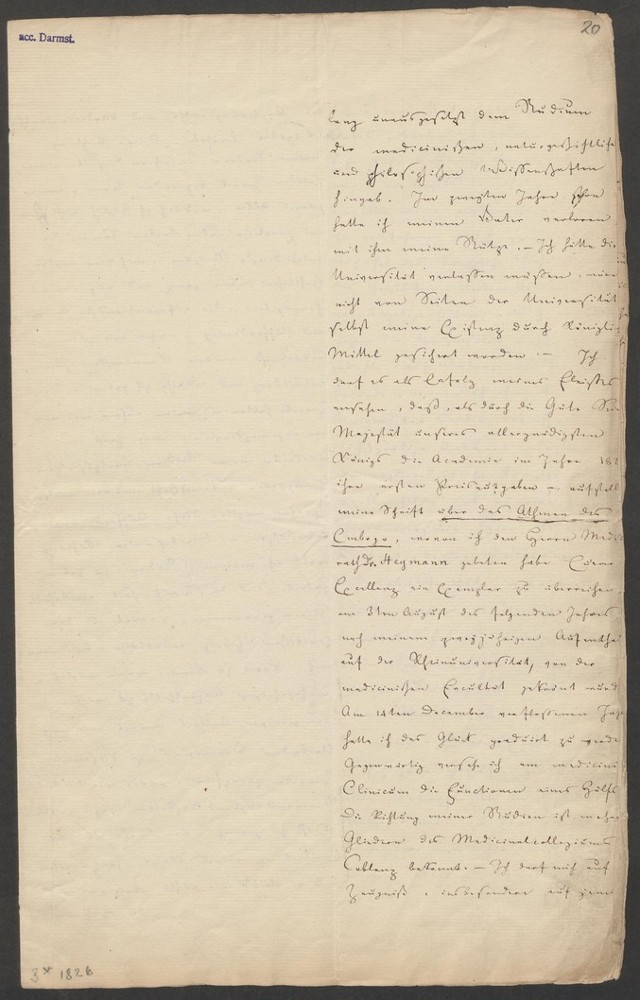 acc. Darmst.
20
lang unausgesetzt dem Studium
der medicinischen, naturgeschichtliche
und philosophischen Wissenschaften
hingab. Im zweyten Jahre schon
hatte ich meinen Vater verloren
mit ihm meine Stütze. – Ich hätte die
Universität verlassen müssen, wäre
nicht von Seiten der Universität
selbst meine Existenz durch Königlic
Mittel gesichert worden. – Ich
darf es als Erfolg meines Fleißes
ansehen, daß, als durch die Güte Sr
Majestät unseres allergnädigsten
Königs die Academie im Jahre 182
ihre ersten Preisaufgaben aufstell
meine Schrift über das Athmen des
Embryo, wovon ich den Herrn Med
rath Dr. Hegmann gebeten habe Euer
Excellenz ein Exemplar zu überreichen,
am 3ten August des folgenden Jahres
nach meinem zweyjährigen Aufentha
auf der Rheinuniversität, von der
medicinischen Facultät gekrönt wurd
Am 14ten December verflossenen Jah
hatte ich das Glück graduirt zu werde
Gegenwärtig versehe ich am medicini
Clinicum die Functionen eines Hülfs
Die Richtung meiner Studien ist mehr
Gliedern des Medicinalcollegiums
Coblenz bekannt. – Ich darf mich auf
Zeugniße, insbesondere auf jene
3 x 1826